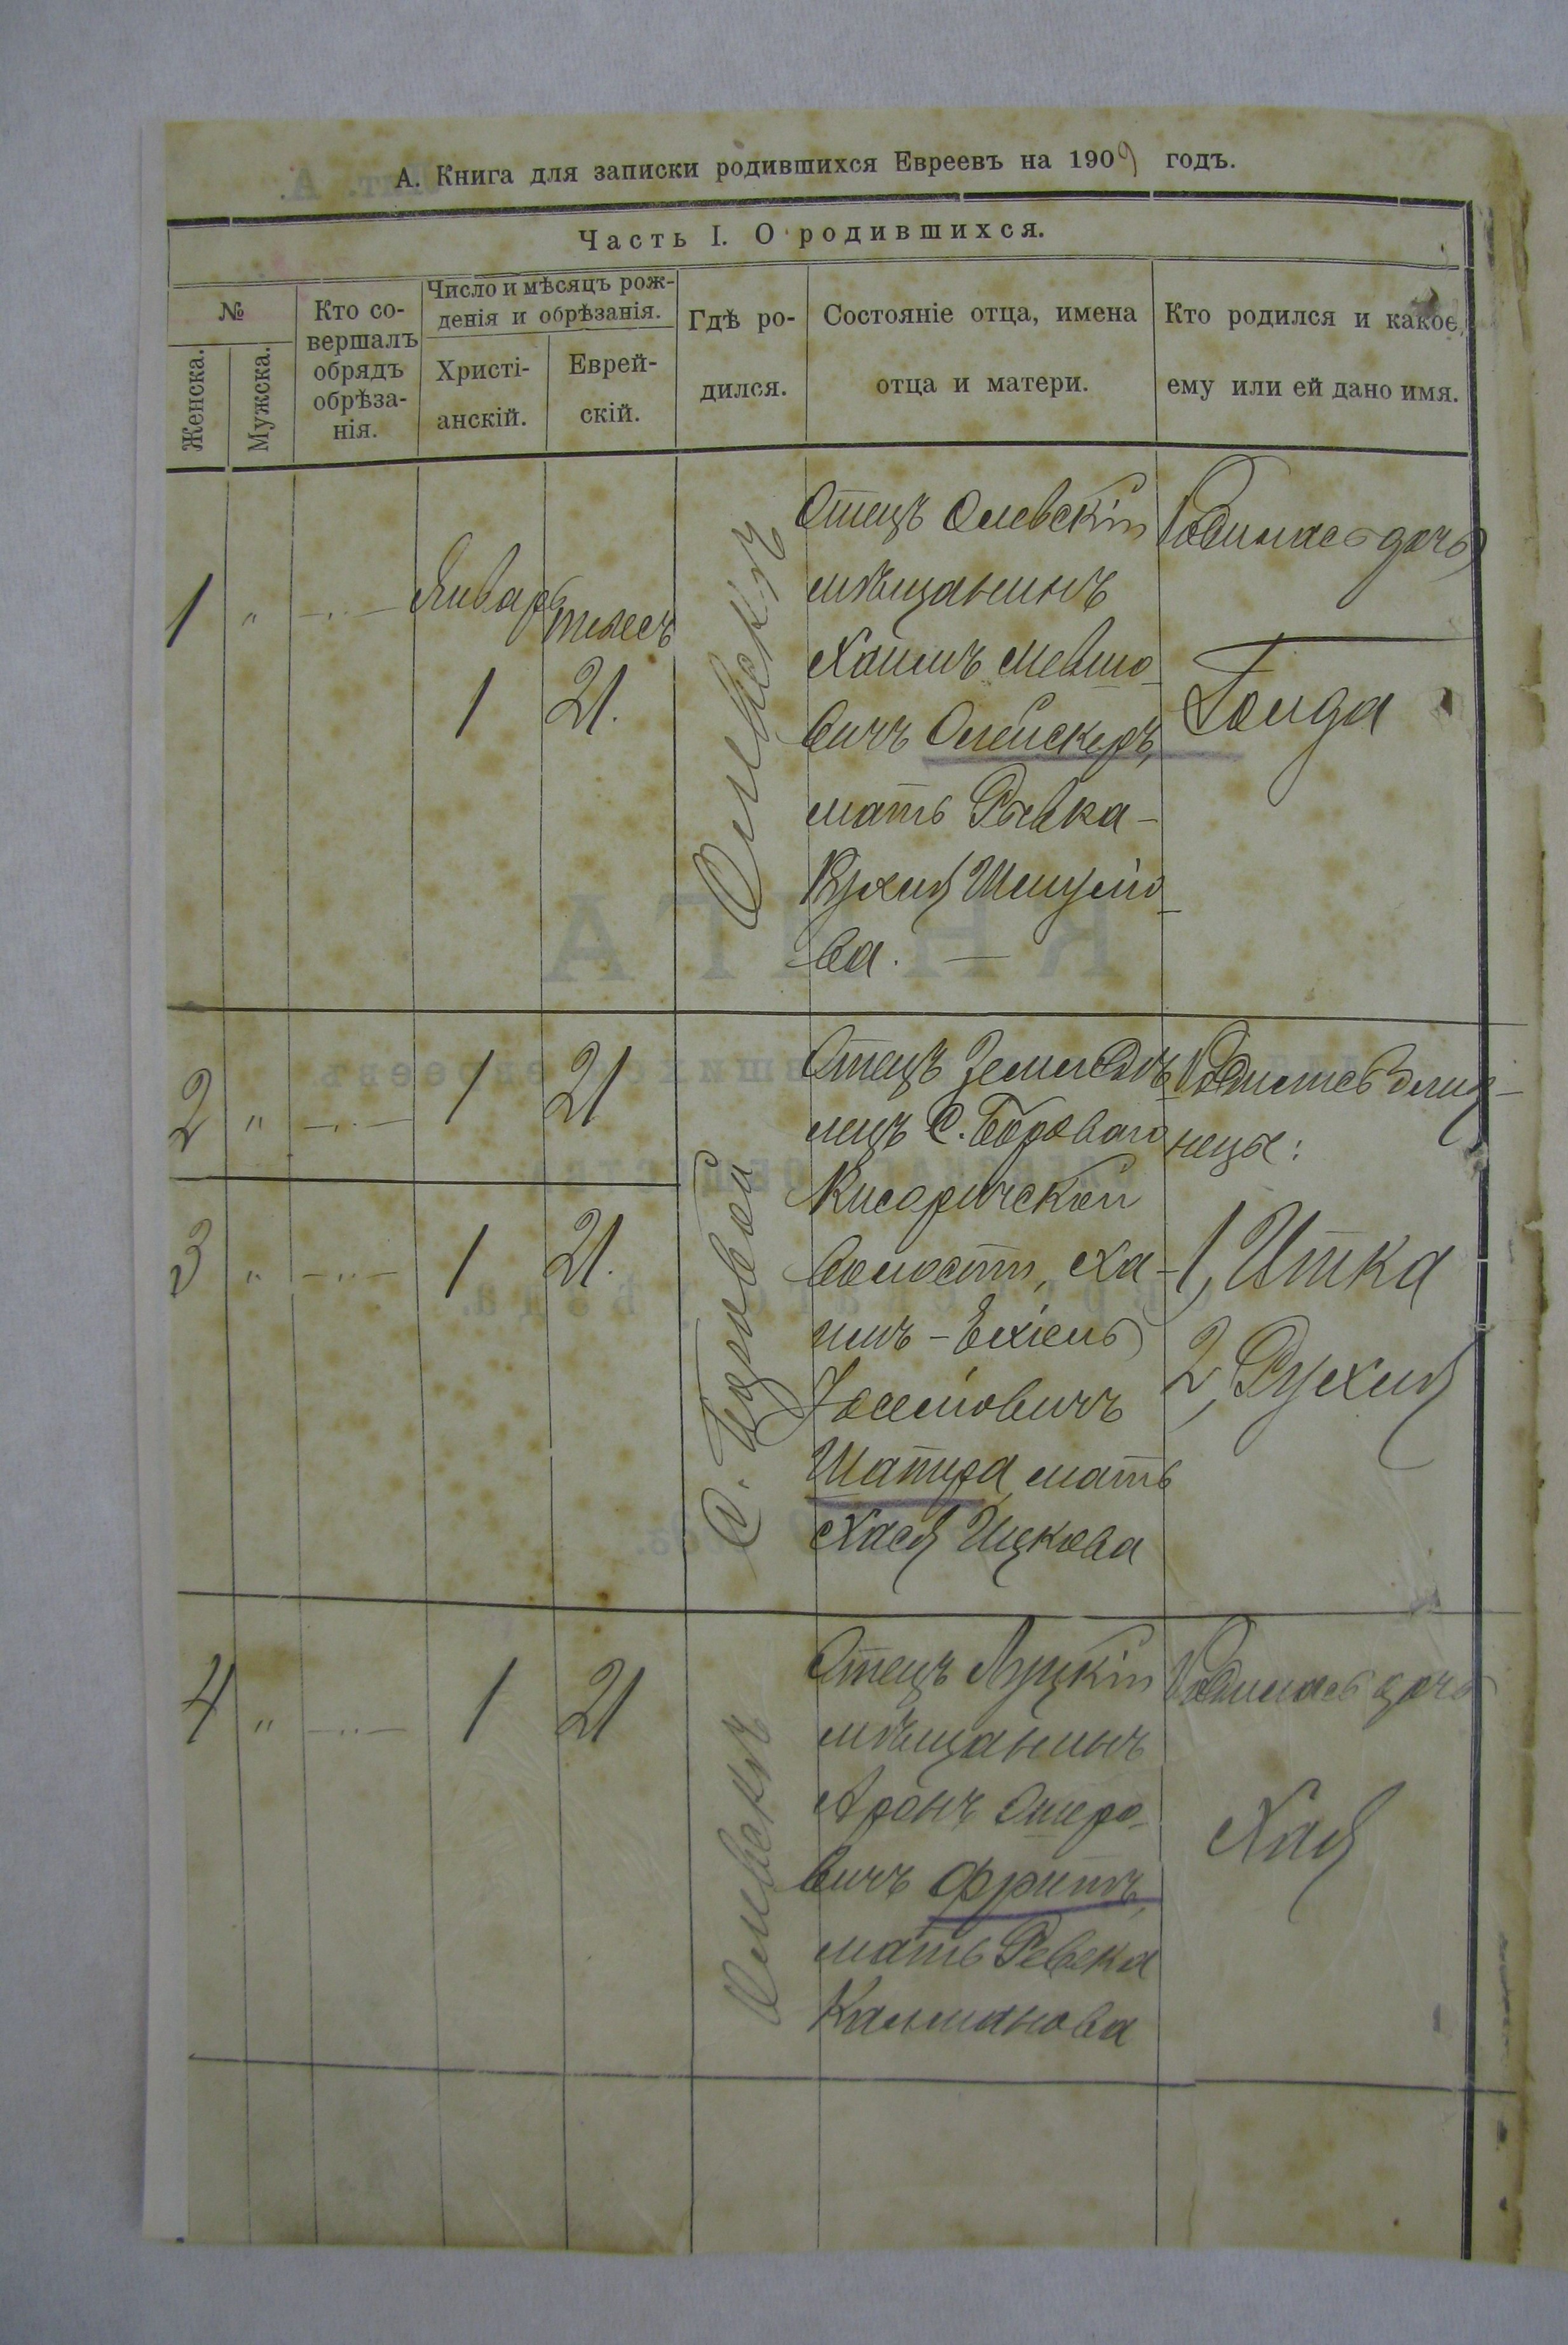 А. Книга для записки родившихся Евреевъ на 1909 годъ.
Часть I. О родившихся.
№
Женска.
Мужска.
Кто со-
вершалъ
обрядъ
обрѣза-
нія.
Число и мѣсяцъ рож-
денія и обрѣзанія.
Христі-
анскій.
Еврей-
скій.
Гдѣ ро-
дился.
Состояніе отца, имена
отца и матери.
Кто родился и какое
ему или ей дано имя.
1 " —"—
Январь
1
21.
Олевскъ
Отецъ Олевскій
мѣщанинъ
Хаимъ
вичъ Олейскеръ,
мать Рывка-
Рухля
ва. —
Родилась дочь
Голда
2 " —"— 1 21
3 " —"— 1 21.
С. Боровое
Отецъ Земледѣ-
лецъ С. Бороваго
Кисоричской
волости, Ха-
имъ-Ехіель
Іосейовичъ
Шапира, мать
Хася Ицкова
Родились близ-
нецы:
1, Итка
2, Рухля
4 " —"— 1 21
Олевскъ
Отецъ Луцкій
мѣщанинъ
Аронъ Ошеро-
вичъ Фритъ,
мать Ревека
Кальманова
Родилась дочь
Хая